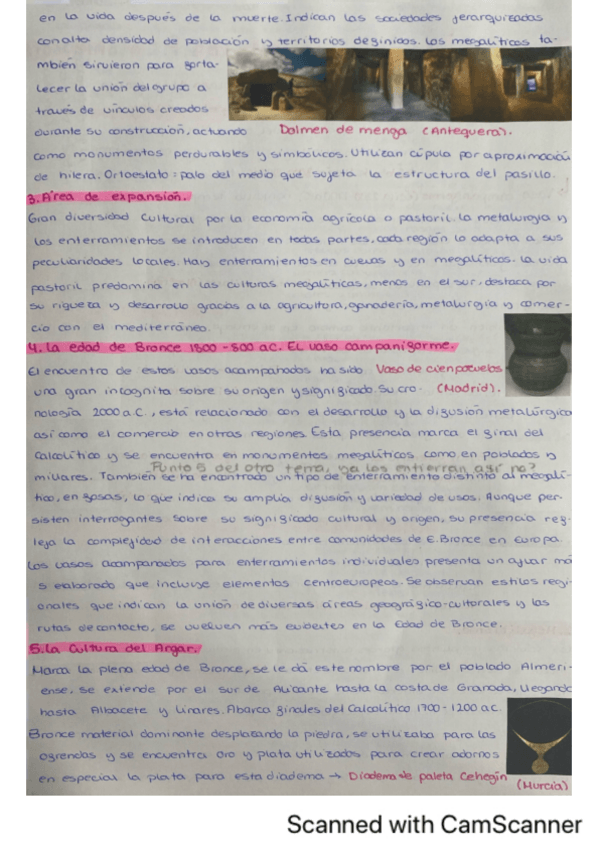 en la vida después de la muerte. Indican las sociedades jerarquizadas
con alta densidad de población y territorios definidos. Los megalíticos ta-
mbién sirvieron para forta-
lecer la unión del grupo a
través de vínculos creados
durante su construcción, actuando Dolmen de menga (Antequera).
como monumentos perdurables y simbólicos. Utilizan cúpula por aproximación
de hilera. Ortoestato: palo del medio que sujeta la estructura del pasillo.
3. Área de expansión.
Gran diversidad cultural por la economía agrícola o pastoril. La metalurgia y
los enterramientos se introducen en todas partes, cada región lo adapta a sus
peculiaridades locales. Hay enterramientos en cuevas y en megalíticos. La vida
pastoril predomina en las culturas megalíticas, menos en el sur, destaca por
su riqueza y desarrollo gracias a la agricultura, ganadería, metalurgia y comer-
cio con el mediterráneo.
4. La edad de Bronce 1800 - 800 a.C. EL vaso campaniforme.
El encuentro de estos vasos acampanados ha sido Vaso de cienpozuelos
una gran incognita sobre su origen y significado. Su cro- (Madrid).
nología 2000 a.C., está relacionado con el desarrollo y la difusión metalúrgica
así como el comercio en otras regiones. Esta presencia marca el final del
Calcolítico y se encuentra en monumentos megalíticos, como en poblados y
Punto 5 del otro tema, ya los entierran así no?
millares. También se ha encontrado un tipo de enterramiento distinto al megalí-
tico, en fosas, lo que indica su amplia difusión y variedad de usos. Aunque per-
sisten interrogantes sobre su significado cultural y origen, su presencia ref-
leja la complejidad de interacciones entre comunidades de E. Bronce en Europa.
Los vasos acampanados para enterramientos individuales presenta un ajuar má-
s elaborado que incluye elementos centroeuropeos. Se observan estilos regi-
onales que indican la unión de diversas áreas geográfico-culturales y las
rutas de contacto, se vuelven más evidentes en la Edad de Bronce.
5. La Cultura del Argar.
Marca la plena edad de Bronce, se le da este nombre por el poblado Almeri-
ense, se extiende por el sur de Alicante hasta la costa de Granada, llegando
hasta Albacete y Linares. Abarca finales del Calcolítico 1700 - 1200 a.C.
Bronce material dominante desplazando la piedra, se utilizaba para las
ofrendas y se encuentra oro y plata utilizados para crear adornos
en especial la plata para esta diadema → Diadema de paleta Cehegín
(Murcia)
Scanned with CamScanner